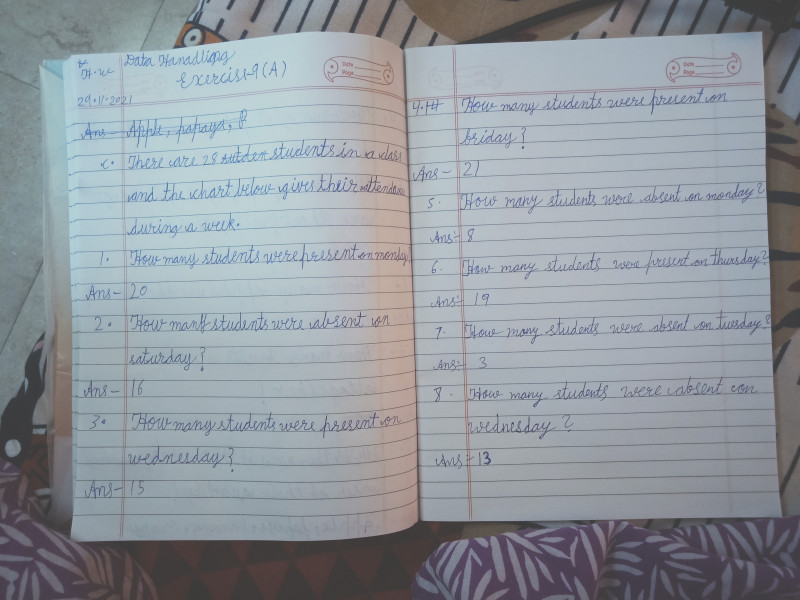 H.w
Data Hanadliopg
Exercisi-9(A)
29.11.2021
Ans- Apple, papaya, P
c. There are 28 sutden students in a class
and the chart below gives their attendance
during a week.
1. How many students were present on monday?
Ans- 20
2. How many students were absent on
saturday?
Ans- 16
3. How many students were present on
wednesday?
Ans- 15
Date
Page
4. How many students were present on
briday?
Ans- 21
5. How many students were absent on monday?
Ans:- 8
6. How many students were present on thursday?
Ans:- 19
7. How many students were absent on tuesday?
Ans:- 3
8. How many students were absent con
wednesday?
Ans:- 13
Date
Page